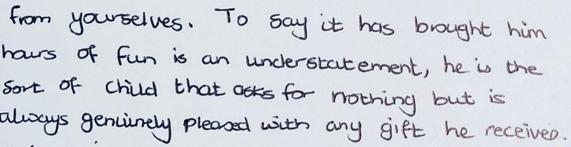 from yourselves. To say it has brought him
hours of fun is an understatement, he is the
sort of child that asks for nothing but is
always genuinely pleased with any gift he received.